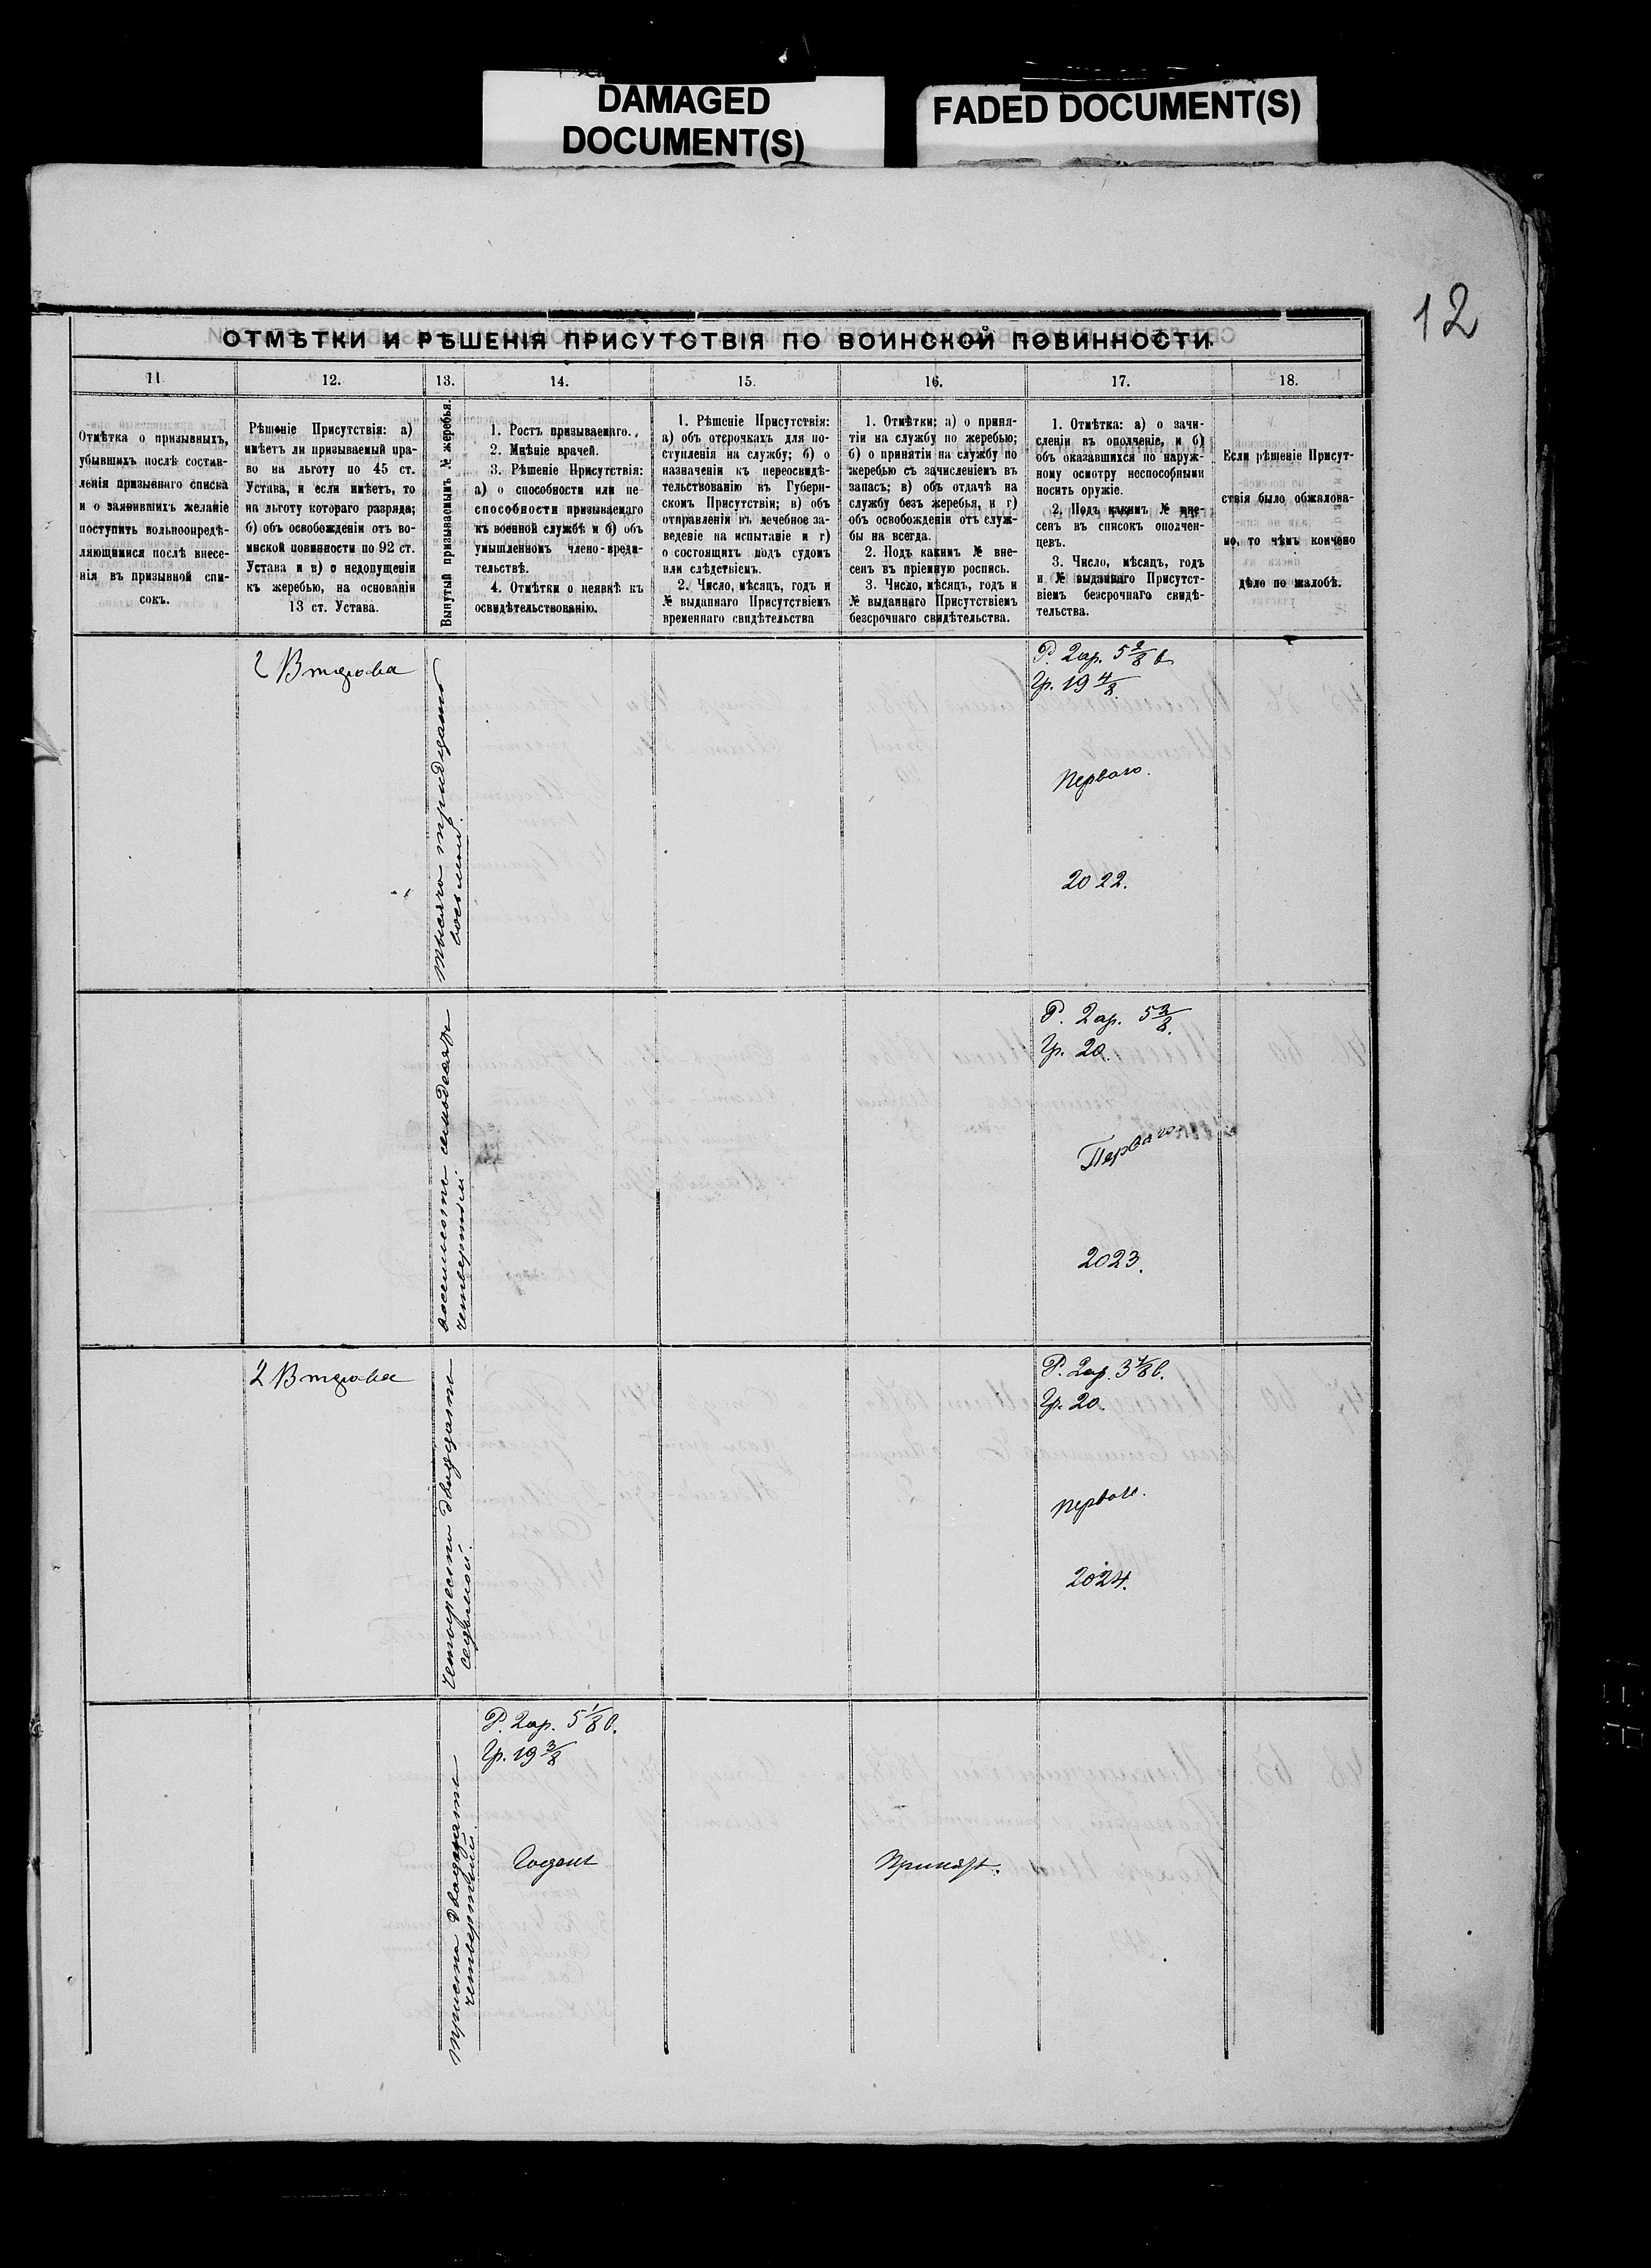 DAMAGED
DOCUMENT(S)
FADED DOCUMENT(S)
12
ОТМѢТКИ И РѢШЕНІЯ ПРИСУТСТВІЯ ПО ВОИНСКОЙ ПОВИННОСТИ.
11.
12.
13.
14.
15.
16.
17.
18.
Отмѣтка о призывныхъ,
убывшихъ послѣ состав-
ленія призывнаго списка
и о заявившихъ желаніе
поступить вольноопредѣ-
ляющимися послѣ внесе-
нія въ призывной спи-
сокъ.
Рѣшеніе Присутствія: а)
имѣетъ ли призываемый пра-
во на льготу по 45 ст.
Устава, и если имѣетъ, то
на льготу котораго разряда;
б) объ освобожденіи отъ во-
инской повинности по 92 ст.
Устава и в) о недопущеніи
къ жеребью, на основаніи
13 ст. Устава.
Вынутый призываемымъ № жеребья.
1. Ростъ призываемаго.
2. Мнѣніе врачей.
3. Рѣшеніе Присутствія:
а) о способности или не-
способности призываемаго
къ военной службѣ и б) объ
умышленномъ члено-вреди-
тельствѣ.
4. Отмѣтки о неявкѣ къ
освидѣтельствованію.
1. Рѣшеніе Присутствія:
а) объ отсрочкахъ для по-
ступленія на службу; б) о
назначеніи къ переосвидѣ-
тельствованію въ Губерн-
скомъ Присутствіи; в) объ
отправленіи въ лечебное за-
веденіе на испытаніе и г)
о состоящихъ подъ судомъ
или слѣдствіемъ.
2. Число, мѣсяцъ, годъ и
№ выданнаго Присутствіемъ
временнаго свидѣтельства
1. Отмѣтки: а) о приня-
тіи на службу по жеребью;
б) о принятіи на службу по
жеребью съ зачисленіемъ въ
запасъ; в) объ отдачѣ на
службу безъ жеребья, и г)
объ освобожденіи отъ служ-
бы на всегда.
2. Подъ какимъ № вне-
сенъ въ пріемную роспись.
3. Число, мѣсяцъ, годъ и
№ выданнаго Присутствіемъ
безсрочнаго свидѣтельства.
1. Отмѣтка: а) о зачи-
сленіи въ ополченіе, и б)
объ оказавшихся по наруж-
ному осмотру неспособными
носить оружіе.
2. Подъ какимъ № вне-
сенъ въ списокъ ополчен-
цевъ.
3. Число, мѣсяцъ, годъ
и № выданнаго Присутст-
віемъ безсрочнаго свидѣ-
тельства.
Если рѣшеніе Присут-
ствія было обжалова-
но, то чѣмъ кончено
дѣло по жалобѣ.
2 Втораго
тысяча тридцать
восьмой.
Р. 2 ар. 5 2/8 в
Гр. 19 4/8.
Перваго.
2022.
восемьсотъ семьдесятъ
четвертый
Р. 2 ар. 5 3/8.
Гр. 20.
Перваго.
2023.
2 Втораго
четыреста двадцать
седьмой.
Р. 2 ар. 3 1/8 в.
Гр. 20.
Перваго.
2024.
триста двадцать
четвертый.
Р. 2 ар. 5 1/8 в.
Гр. 19 3/8
Годенъ
Принятъ.